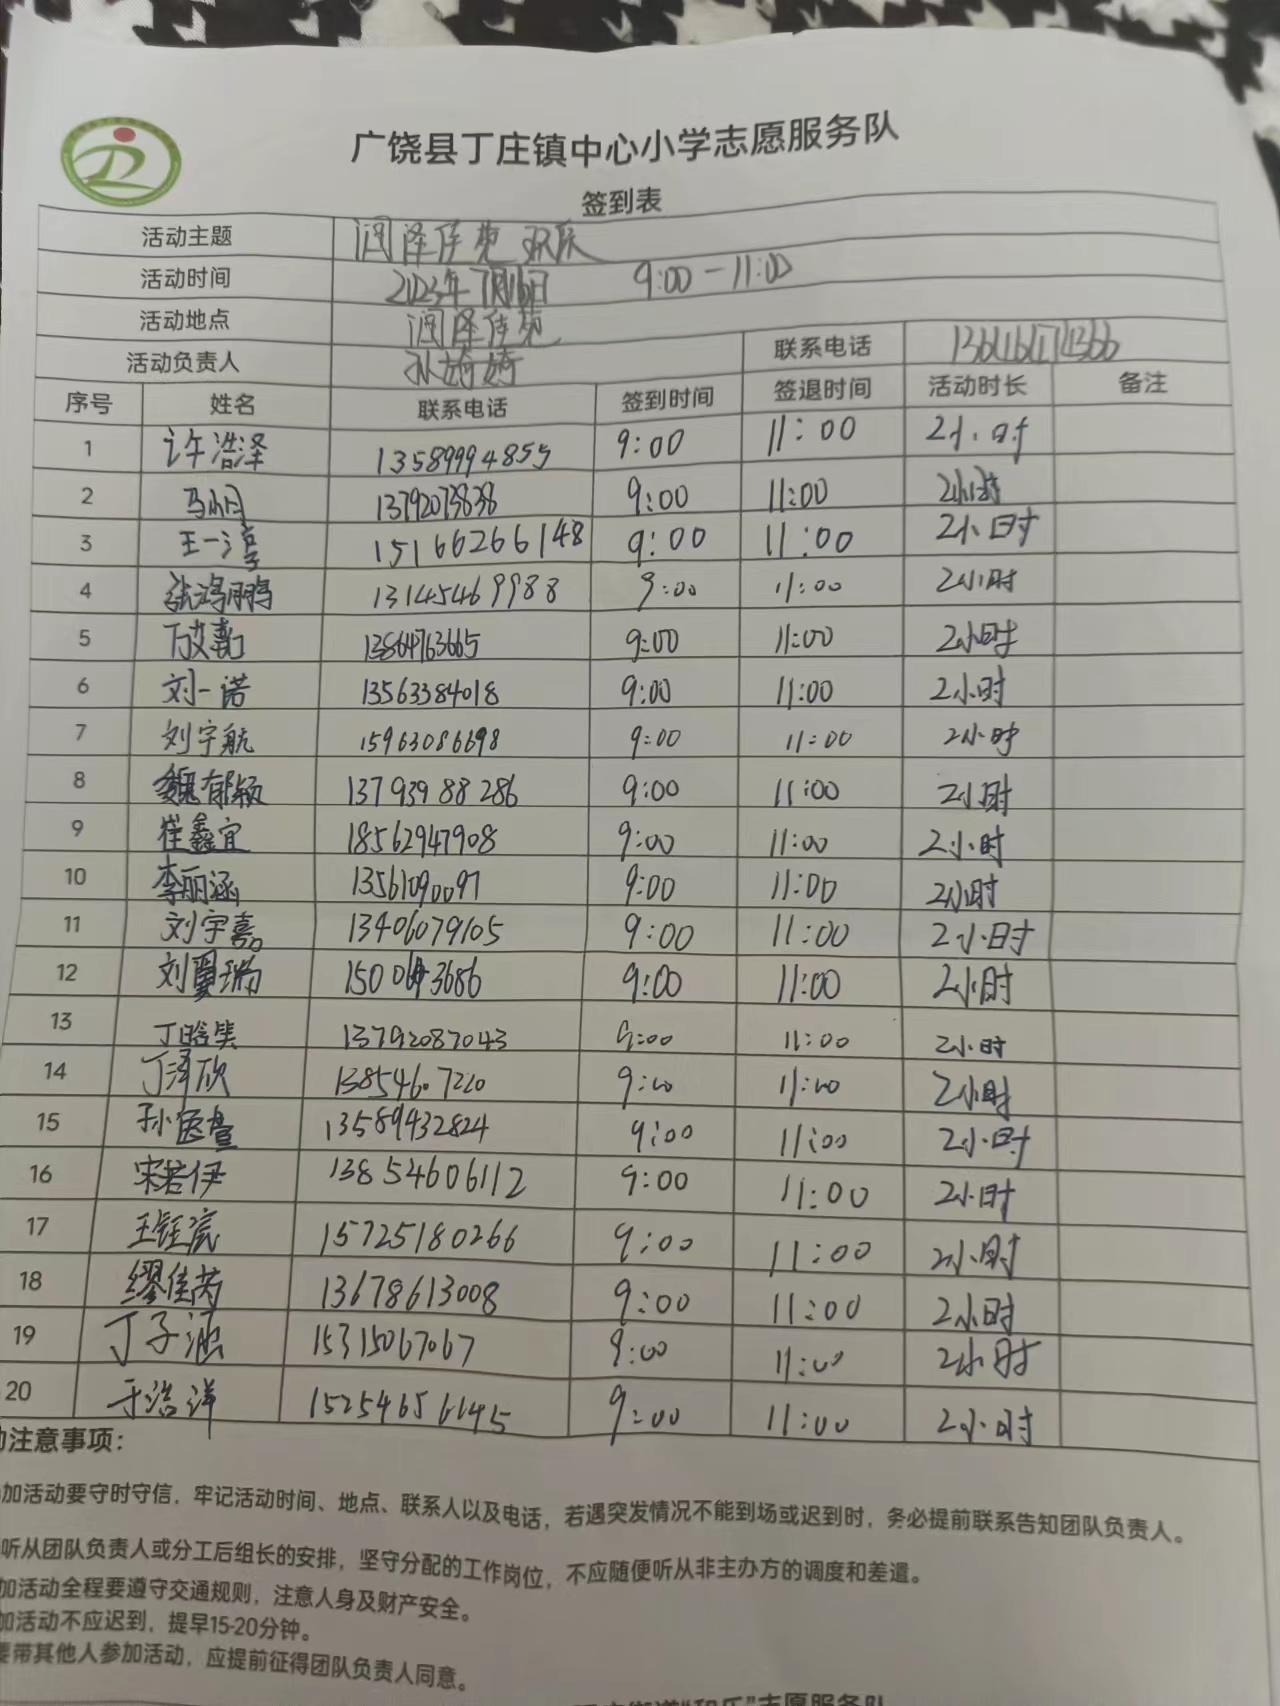 广饶县丁庄镇中心小学志愿服务队
签到表
活动主题 润泽佳苑 欢乐
活动时间 2023年7月16日 9:00-11:00
活动地点 润泽佳苑
活动负责人 孙婍婍 联系电话
序号 姓名 联系电话 签到时间 签退时间 活动时长 备注
1 许浩泽 13589994855 9:00 11:00 2小时
2 13792073838 9:00 11:00 2小时
3 王一淳 15166266148 9:00 11:00 2小时
4 张鸿鹏 13145469988 9:00 11:00 2小时
5 13864763665 9:00 11:00 2小时
6 刘一诺 13563384018 9:00 11:00 2小时
7 刘宇航 15963086698 9:00 11:00 2小时
8 魏郁颖 13793988286 9:00 11:00 2小时
9 崔鑫宜 18562947908 9:00 11:00 2小时
10 李丽涵 13561090097 9:00 11:00 2小时
11 刘宇嘉 13406079105 9:00 11:00 2小时
12 刘翼瑞 9:00 11:00 2小时
13 丁晗笑 13792087043 9:00 11:00 2小时
14 丁泽欣 13854607220 9:00 11:00 2小时
15 13589432824 9:00 11:00 2小时
16 宋若伊 13854606112 9:00 11:00 2小时
17 15725180266 9:00 11:00 2小时
18 缪佳芮 13678613008 9:00 11:00 2小时
19 丁子涵 15315067067 9:00 11:00 2小时
20 于浩洋 15254656645 9:00 11:00 2小时
注意事项：
加活动要守时守信，牢记活动时间、地点、联系人以及电话，若遇突发情况不能到场或迟到时，务必提前联系告知团队负责人。
听从团队负责人或分工后组长的安排，坚守分配的工作岗位，不应随便听从非主办方的调度和差遣。
加活动全程要遵守交通规则，注意人身及财产安全。
加活动不应迟到，提早15-20分钟。
要带其他人参加活动，应提前征得团队负责人同意。
街道“和乐”志愿服务队